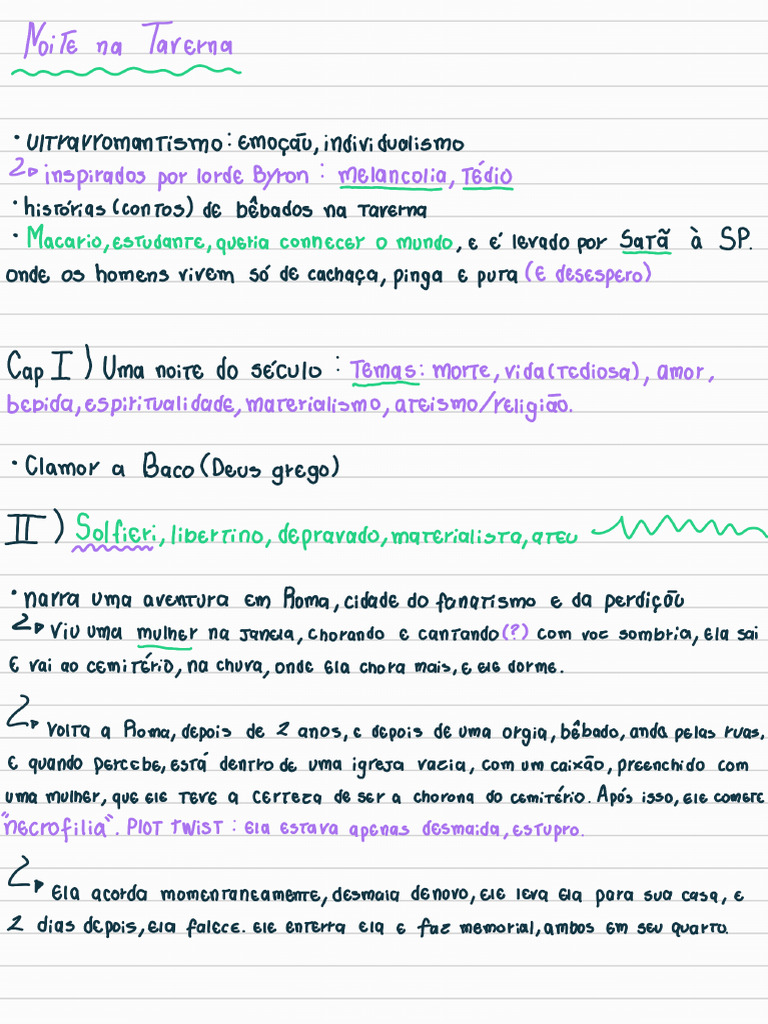 Noite na Taverna
• ultrarromantismo: emoção, individualismo
inspirados por lorde Byron: melancolia, tédio
• histórias (contos) de bêbados na taverna
• Macario, estudante, queria connecer o mundo, e é levado por Satã à SP.
onde os homens vivem só de cachaça, pinga e pura (E desespero)
Cap I) Uma noite do século: Temas: morte, vida (tediosa), amor,
bebida, espiritualidade, materialismo, ateismo/religião.
• Clamor a Baco (Deus grego)
II) Solfieri, libertino, depravado, materialista, ateu
• narra uma aventura em Roma, cidade do fanatismo e da perdição
Viu uma mulher na janela, chorando e cantando (?) com voz sombria, ela sai
E vai ao cemitério, na chuva, onde ela chora mais, e ele dorme.
Volta a Roma, depois de 2 anos, e depois de uma orgia, bêbado, anda pelas ruas,
E quando percebe, está dentro de uma igreja vazia, com um caixão, preenchido com
uma mulher, que ele teve a certeza de ser a chorona do cemitério. Após isso, ele comete
"necrofilia". Plot twist: ela estava apenas desmaida, estupro.
Ela acorda momentaneamente, desmaia denovo, ele leva ela para sua casa, e
2 dias depois, ela falece. ele enterra ela e faz memorial, ambos em seu quarto.